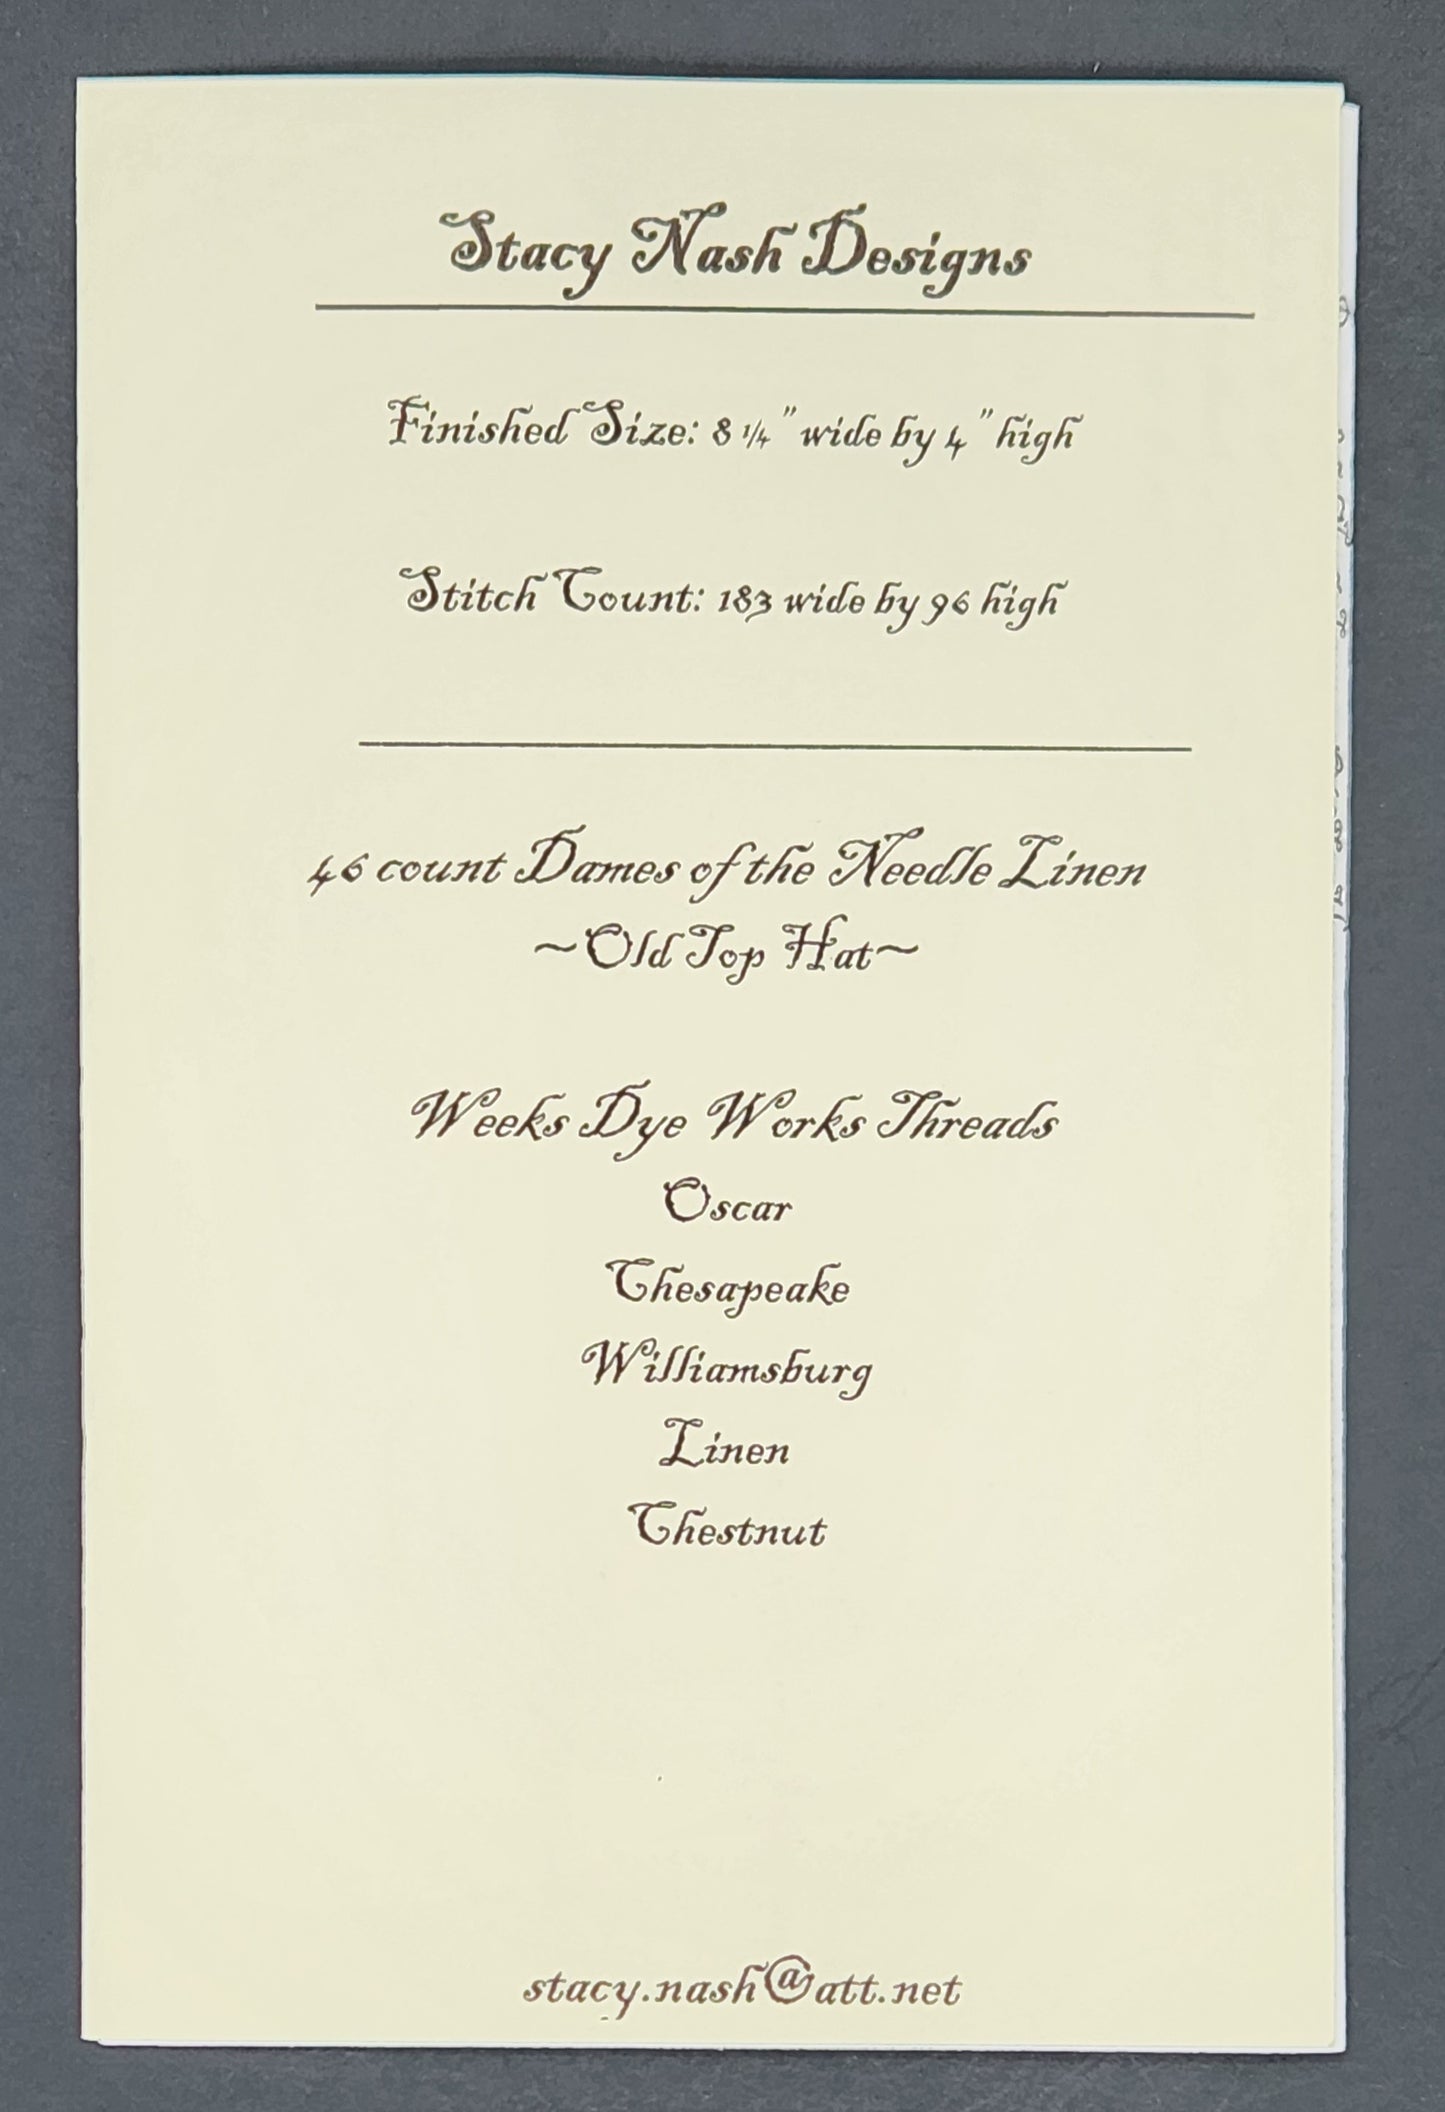 Stacy Nash Designs
Finished Size: 8 1/4" wide by 4" high
Stitch Count: 183 wide by 96 high
46 count Dames of the Needle Linen
~Old Top Hat~
Weeks Dye Works Threads
Oscar
Chesapeake
Williamsburg
Linen
Chestnut
stacy.nash@att.net